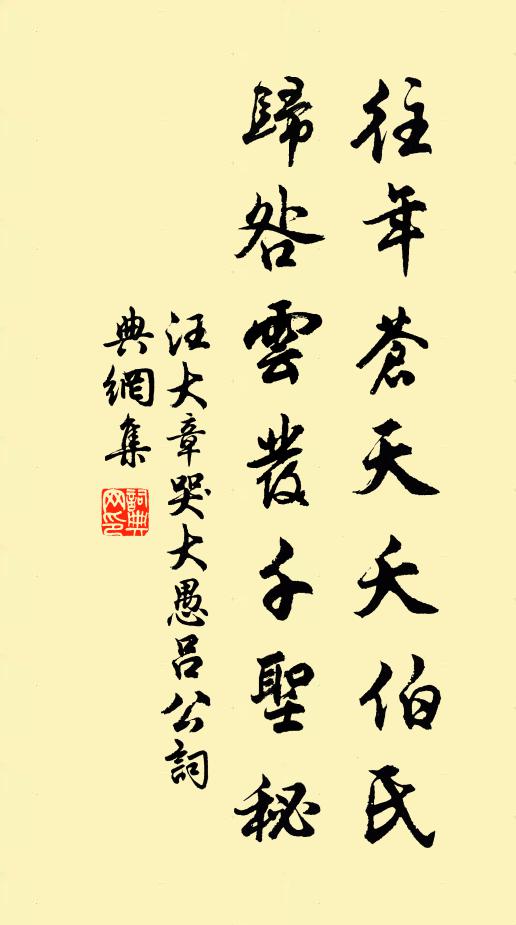 往年蒼天夭伯氏
歸咎雲發千聖秘
汪大章哭大愚呂公詞
典網集
詞典網印